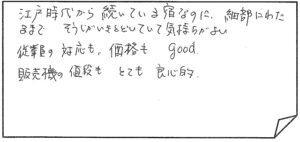 江戸時代から続いている宿なのに、細部にわた
るまで そうじがいきとどいていて気持ちがよい
従業員の対応も、価格も good.
販売機の値段も とても 良心的.